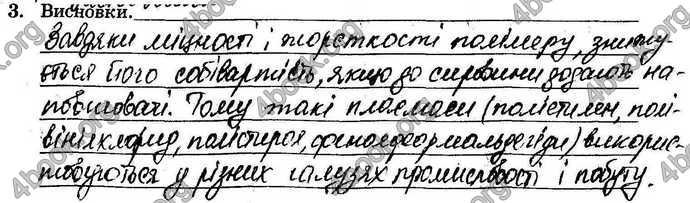 3. Висновки.
Завдяки міцності і жорсткості полімеру, знижу-
ється його собівартість, якщо до сировини додають на-
повнювачі. Тому такі пластмаси (поліетилен, полі-
вінілхлорид, полістирол, фенолформальдегіди) викорис-
товуються у різних галузях промисловості і побуту.